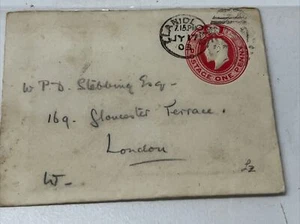 LLANIDL
7.15PM
JY 17
0
POSTAGE ONE PENNY
W P.D. Stebbing Esq.
169. Gloucester Terrace.
London
W.